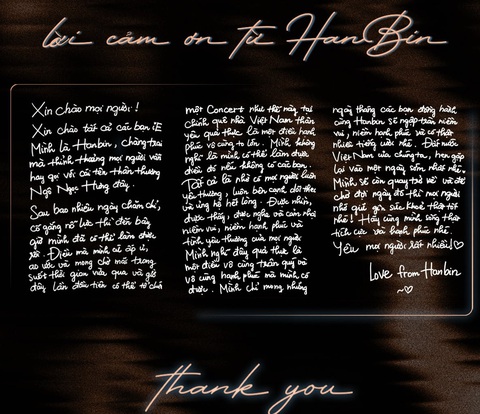 lời cảm ơn từ HanBin
Xin chào mọi người!
Xin chào tất cả các bạn iE
Mình là Hanbin, chàng trai
mà thỉnh thoảng mọi người vẫn
hay gọi với cái tên thân thương
Ngô Ngọc Hưng đây.
Sau bao nhiêu ngày chăm chỉ,
cố gắng nỗ lực thì đến bây
giờ mình đã có thể làm được
rồi. Điều mà mình ấp ủ,
ao ước và mong chờ mãi trong
suốt thời gian vừa qua và giờ
đây lần đầu tiên có thể tổ chức
một Concert như thế này tại
chính quê nhà Việt Nam thân
yêu quả thực là một điều hạnh
phúc vô cùng to lớn. Mình không
nghĩ là mình có thể làm được
điều đó nếu không có các bạn.
Tất cả là nhờ có mọi người luôn
yêu thương, luôn bên cạnh, dõi theo
và ủng hộ hết lòng. Được nhìn,
được thấy, được nghe và cảm nhận
niềm vui, niềm hạnh phúc và
tình yêu thương của mọi người
Mình nghĩ đây quả thực là
một điều vô cùng trân quý và
vô cùng hạnh phúc mà mình có
được. Mình chỉ mong những
ngày tháng các bạn đồng hành
cùng Hanbin sẽ ngập tràn niềm
vui, niềm hạnh phúc và có thật
nhiều tiếng cười nhé. Đất nước
Việt Nam của chúng ta, hẹn gặp
lại vào một ngày sớm nhất nhé.
Mình sẽ còn quay trở về và để
chờ đợi ngày đó thì mọi người
nhớ giữ gìn sức khoẻ thật tốt
nhé! Hãy cùng mình sống thật
tích cực và hạnh phúc nhé.
Yêu mọi người rất nhiều!♡
Love from Hanbin
~♡
thank you